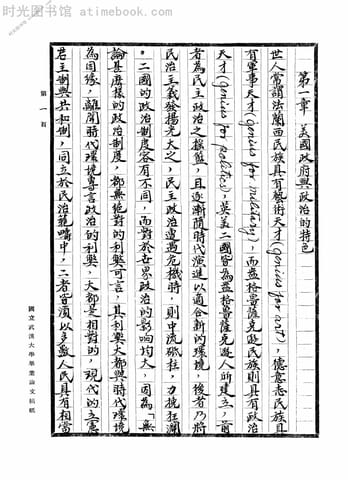 时光图书馆 · atimebook.com
第一章 美國政府與政治的特色
世人常謂法蘭西民族具有藝術天才(genius for art)，德意志民族具
有軍事天才(genius for military)，而盎格魯薩克遜民族則具有政治
天才(genius for politics)英美二國皆為盎格魯薩克遜人所建立，前
者為民主政治之搖籃，且逐漸隨時代演進以適合新的環境，後者乃將
民治主義發揚光大之，民主政治遭遇危機時，則中流砥柱，力挽狂瀾
。二國的政治制度容有不同，而對於世界政治的影响均大，因為「無
論甚麼樣的政治制度，都無絕對的利弊可言，其利弊大都與時代環境
為因緣，離開時代環境專言政治的利弊，大都是相對的，現代的立憲
君主制與共和制，同立於民治範疇中，二者皆須以多數人民具有相當
第一頁
國立武漢大學畢業論文稿紙